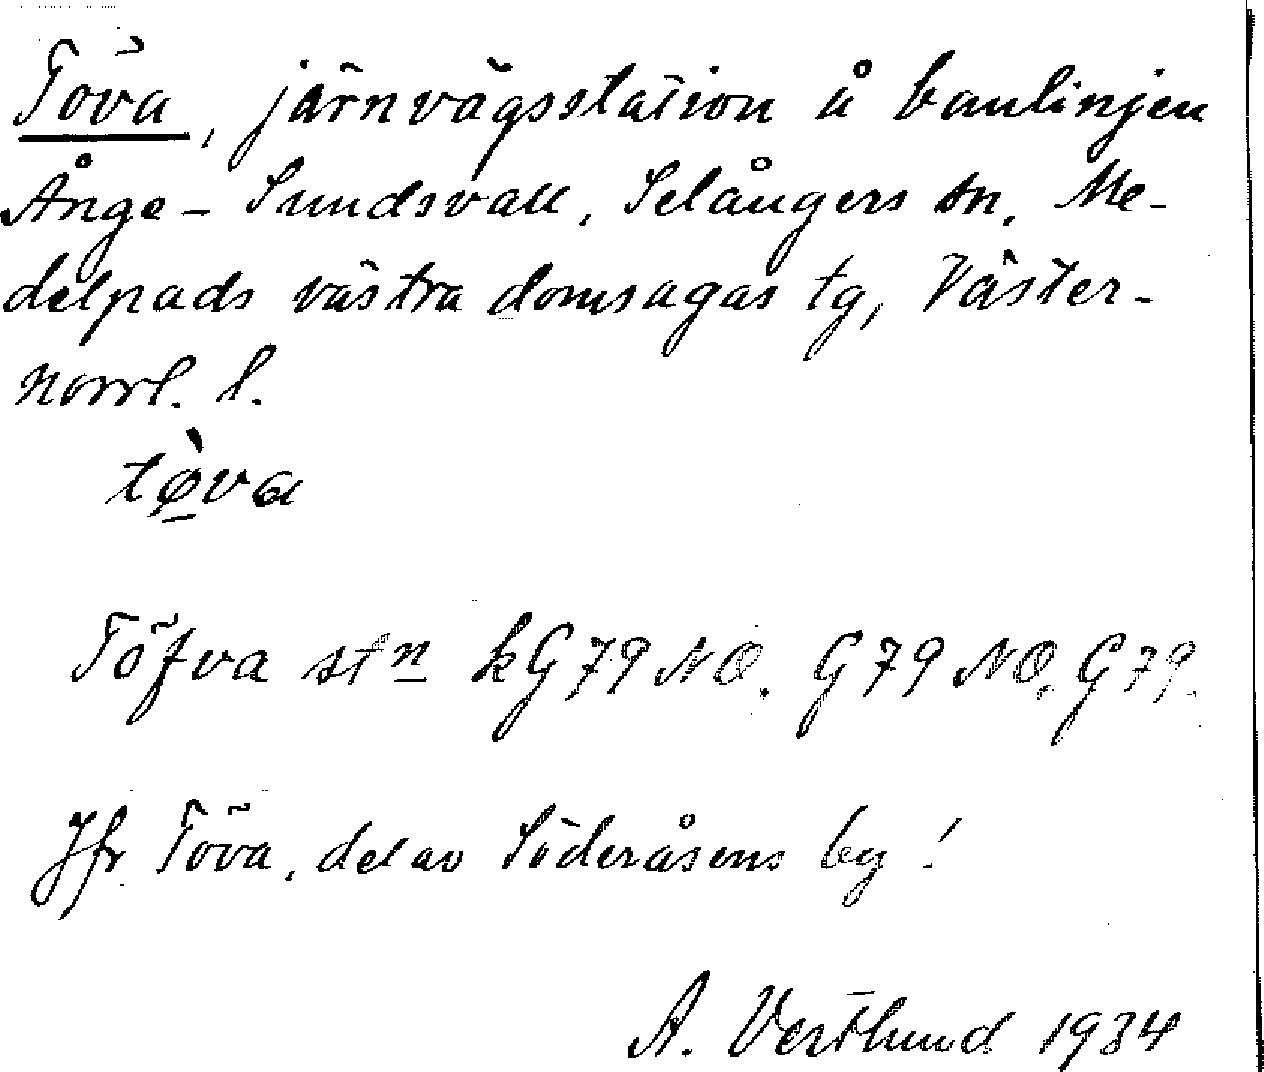 Töva, järnvägsstation å banlinjen
Ånge - Sundsvall, Selångers sn, Me-
delpads västra domsagas tg, Väster-
norrl. l.
tø̀va
Töfva stn kG79NO. G79NO. G79.
Jfr Töva, del av Söderåsens by!
A. Vestlund 1934